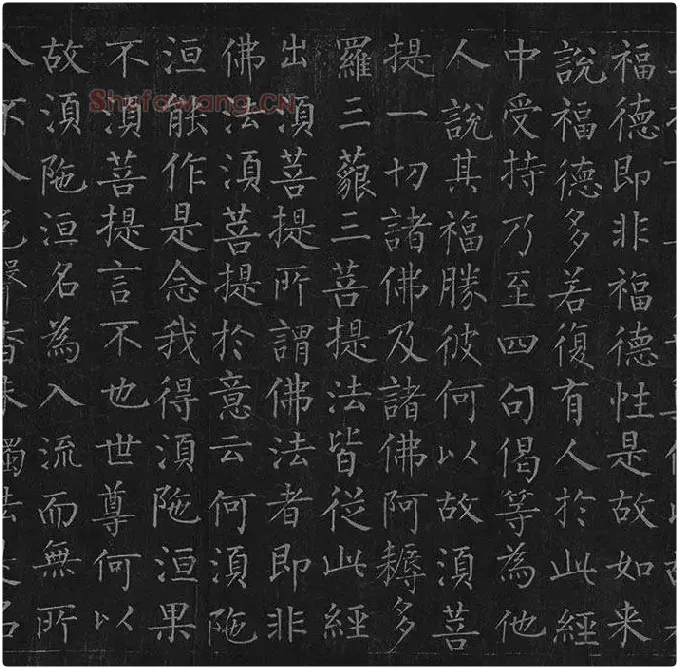 福德即非福德性是故如来
說福德多若復有人於此經
中受持乃至四句偈等為他
人說其福勝彼何以故湏菩
提一切諸佛及諸佛阿耨多
羅三藐三菩提法皆從此經
出湏菩提所謂佛法者即非
佛法湏菩提於意云何湏陁
洹能作是念我得湏陁洹果
不湏菩提言不也世尊何以
故湏陁洹名為入流而無所
入不入色聲香味觸法是名
Shufawang.CN